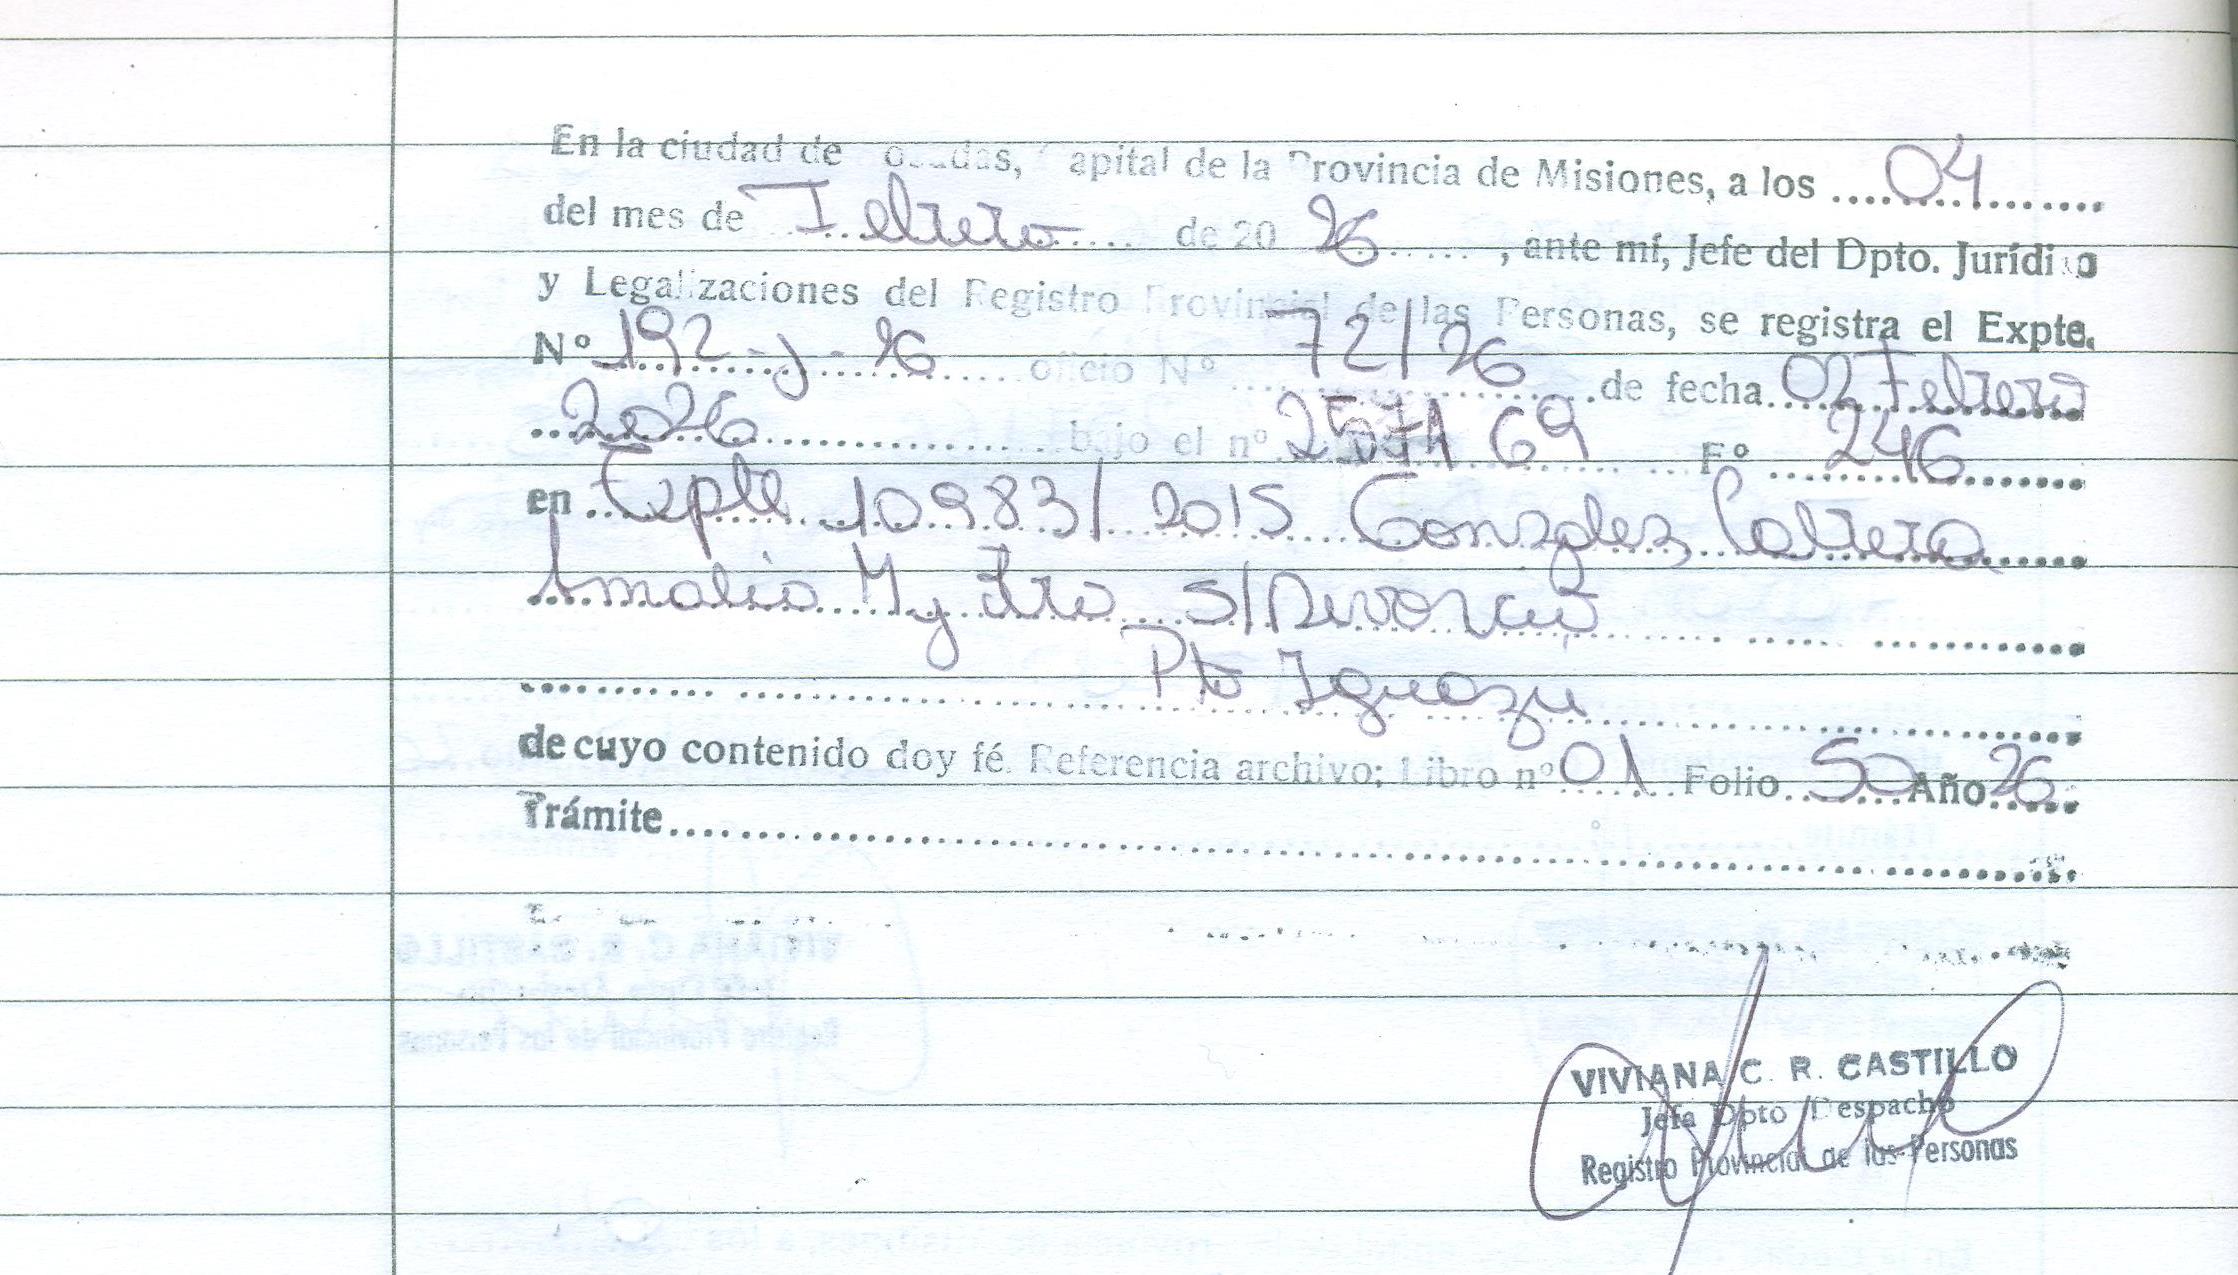 En la ciudad de Posadas, Capital de la Provincia de Misiones, a los ....04....
del mes de Febrero de 20 26 ......, ante mí, Jefe del Dpto. Jurídico
y Legalizaciones del Registro Provincial de las Personas, se registra el Expte.
Nº 192-J-26 oficio Nº 72/26 de fecha 02 Febrero
2026 bajo el nº 69 Fº 246
en Expte 10983/2015 Gonzalez Cabrera
Amalia M y Otro S/Divorcio
Pto Iguazu
de cuyo contenido doy fé. Referencia archivo: Libro nº 01 Folio 50 Año 26
Trámite
VIVIANA C. R. CASTILLO
Jefa Dpto Despacho
Registro Provincial de las Personas